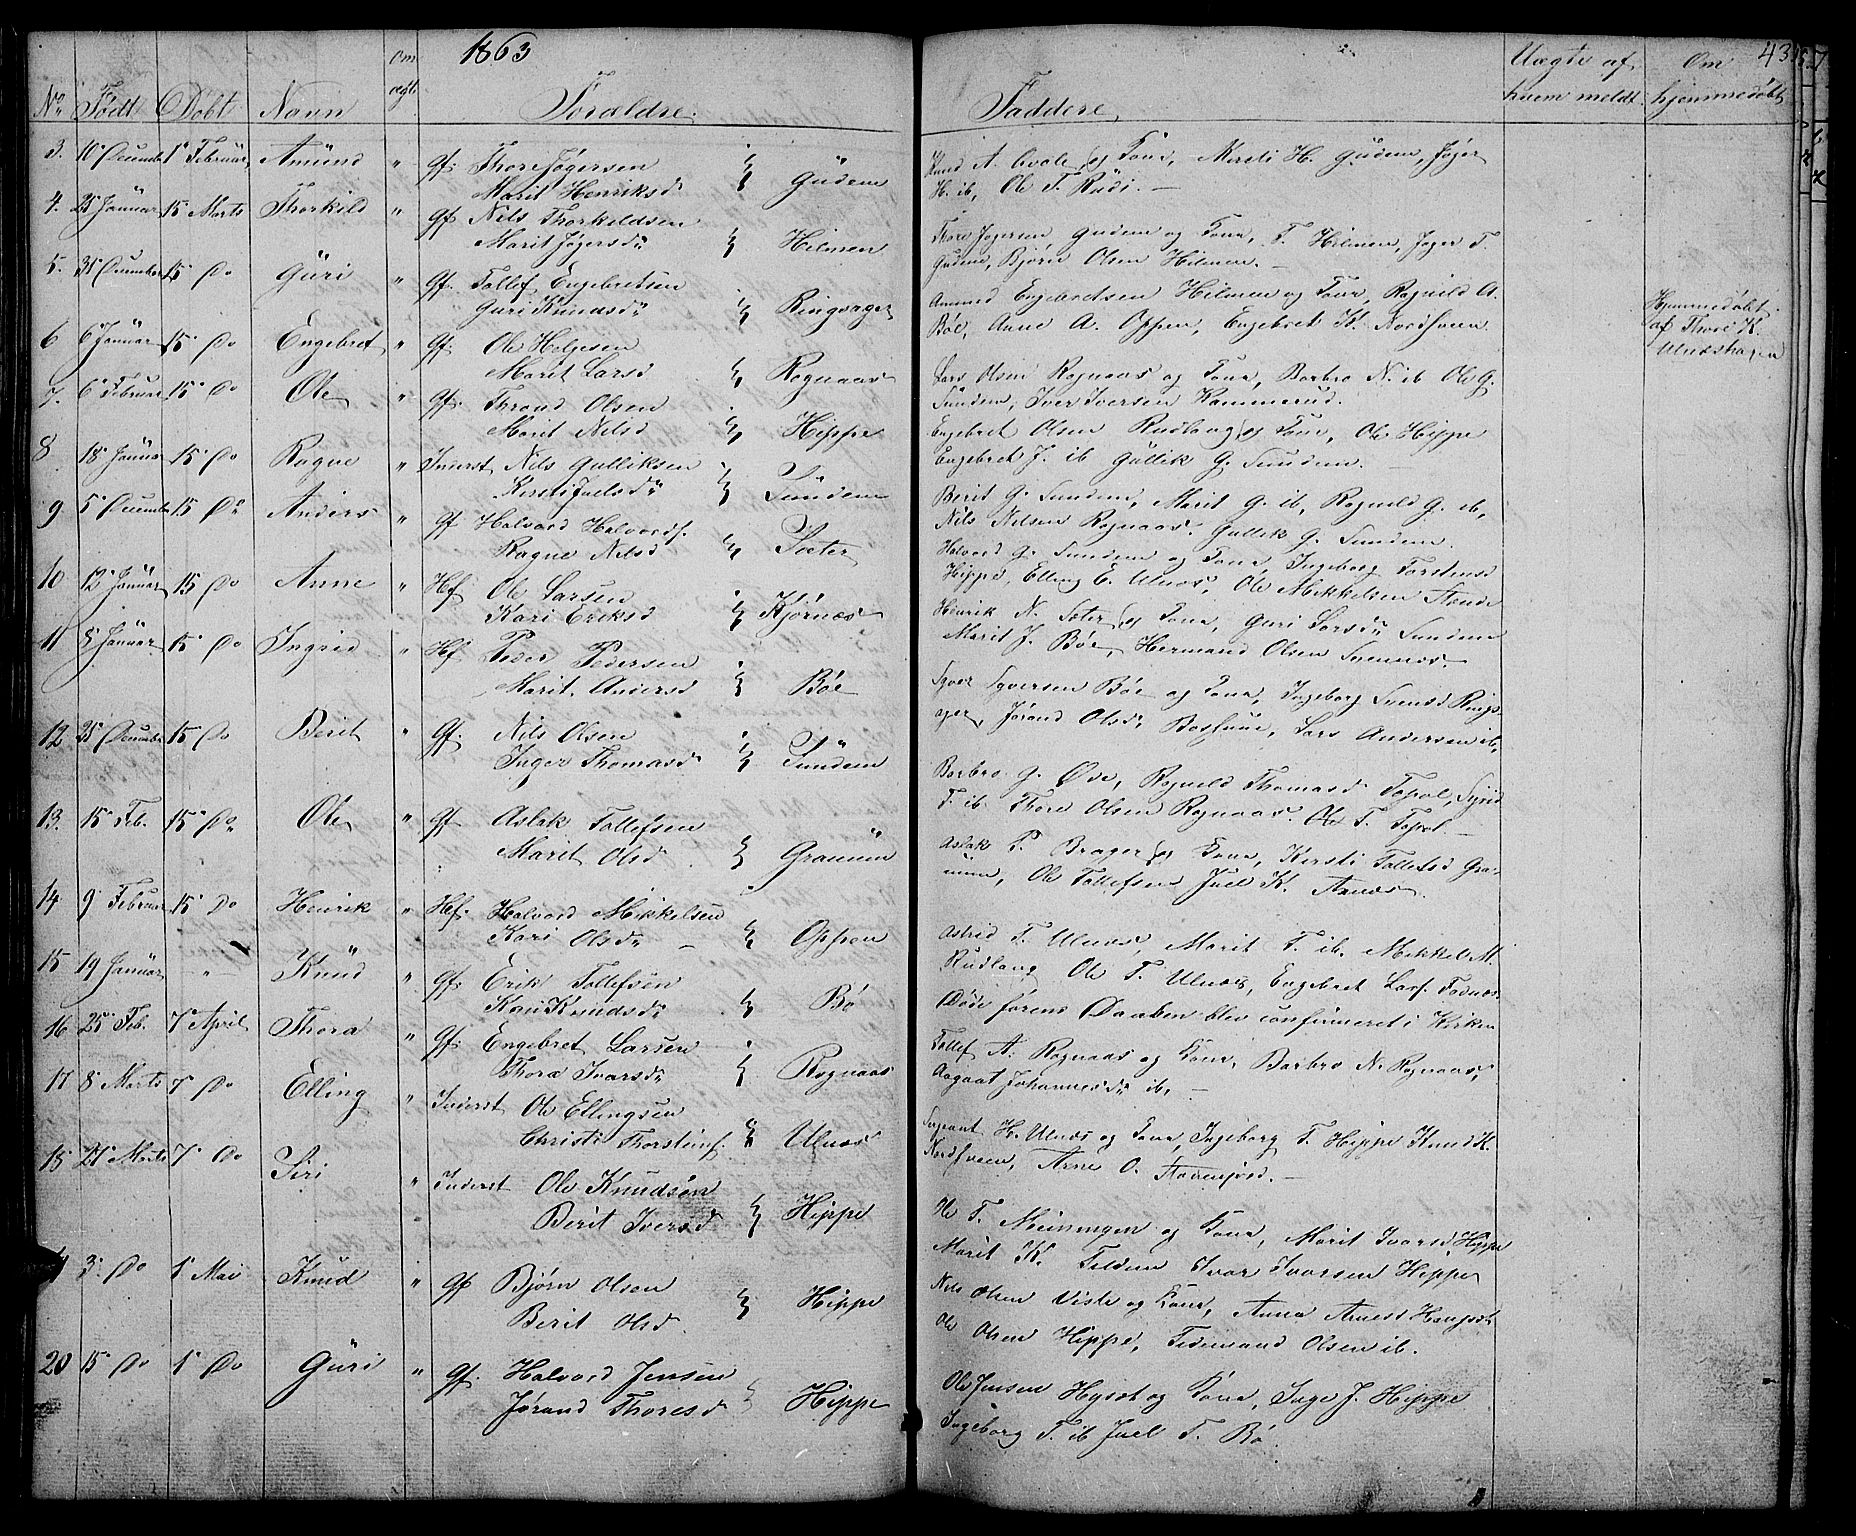 1863
43
No Født Døbt Navn Om ægte Forældre Faddere Uægte af hvem meldt Om hjemmedøbt
3. 10 December 1 Februar Amund " Gf. Thore Jøgersen
Marit Henriksd Gudem
Knud A. og Kone, Kersti H. Gudem, Jøger
H. ib, Ole T. Rudi.
4. 25 Januar 15 Marts Thorkild " Gf. Nils Thorkildsen
Marit Jøgersd Hilmen
Thore Jøgersen Gudem og Kone, T. Hilmen, Jøger T.
Gudem, Bjørn Olsen Hilmen.
5. 31 December 15 Do Guri " Gf. Tollef Engebretsen
Guri Knudsd Ringsager
Ammund Engebretsen Hilmen og Kone, Ragnild A.
Bøe, Anne A. Oppen, Engebret K. Nordsveen
Hjemmedøbt
af Thore K.
Ulnæshagen
6 6 Januar 15 Do Engebret " Gf. Ole Helgesen
Marit Larsd Rognaas
Lars Olsen Rognaas og Kone, Barbro N. ib Ole G.
Sundem, Iver Iversen Kammerud.
7. 6 Februar 15 Do Ole " Gf. Thrond Olsen
Marit Nilsd Hippe
Engebret Olsen Rudlang og Kone, Ole Hippe
Engebret J. ib Gullik G. Sundem.
8 18 Januar 15 Do Ragne " Inderst Nils Gulliksen
Kersti Juelsd Sundem
Berit G. Sundem, Marit G. ib, Ragnild G. ib,
Nils Nilsen Rognaas. Gullik G. Sundem.
9 5 December 15 Do Anders " Gf Halvord Halvords.
Ragne Nilsd Sæter
Halvord G. Sundem og Kone, Ingeborg Torstensd
Hippe, Elling E. Ulnæs, Ole Mikkelsen
10 12 Januar 15 Do Anne " Hf Ole Larsen
Kari Eriksd Kjørnæs
Henrik N. Sæter og Kone, Guri Larsd Sundem
Marit J. Bøe, Hermand Olsen
11 8 Januar 15 Do Ingrid " Hf. Peder Pedersen
Marit Andersd Bøe
Syver Syversen Bøe og Kone, Ingeborg Svensd Rings-
ager, Jørand Olsd, Lars Andersen ib,
12 25 December 15 Do Berit " Gf. Nils Olsen
Inger Thomasd Sundem
Barbro G. Øve, Ragnild Thomasd Topol, Sigrid
T. ib Thore Olsen Rognaas. Ole T. Topol.
13. 15 Feb. 15 Do Ole " Gf Aslak Tollefsen
Marit Olsd Gramum
Aslak P. Brager og Kone, Kersti Tollefsd Gra-
mum, Ole Tollefsen Juel K. Aanæs.
14 9 Februar 15 Do Henrik " Hf. Halvord Mikkelsen
Kari Olsd Oppen
Astrid T. Ulnæs, Marit T. ib. Mikkel M.
Rudlang Ole T. Ulnæs, Engebret Lars.
15 19 Januar " Knud " Gf. Erik Tollefsen
Kari Knudsd Bø
Døde førend Daaben blev confirmeret i Kirken
16 25 Feb. 7 April Thora " Gf. Engebret Larsen
Thora Ivarsd Rognaas
Tollef A. Rognaas og Kone, Barbro N. Rognaas,
Aagaat Johannesd ib,
17 8 Marts 7 Do Elling " Inderst Ole Ellingsen
Christi Thorstens. Ulnæs
Sergeant H. Ulnæs og Kone, Ingeborg T. Hippe Knud K.
Nordsveen, Arne O.
18 21 Marts 7 Do Siri " Inderst Ole Knudsen
Berit Iversd Hippe
Ole T. og Kone, Marit Ivarsd Hippe
Marit K. Ivar Ivarsen Hippe
3 Do 1 Mai Knud " Gf Bjørn Olsen
Berit Olsd Hippe
Nils Olsen Viste og Kone, Anna Arnesd
Ole Olsen Hippe, Fedinand Olsen ib.
20 15 Do 1 Do Guri " Gf. Halvord Jensen
Jørand Thoresd Hippe
Ole Jensen og Kone, Inge J. Hippe
Ingeborg T. ib Juel T. Bø.